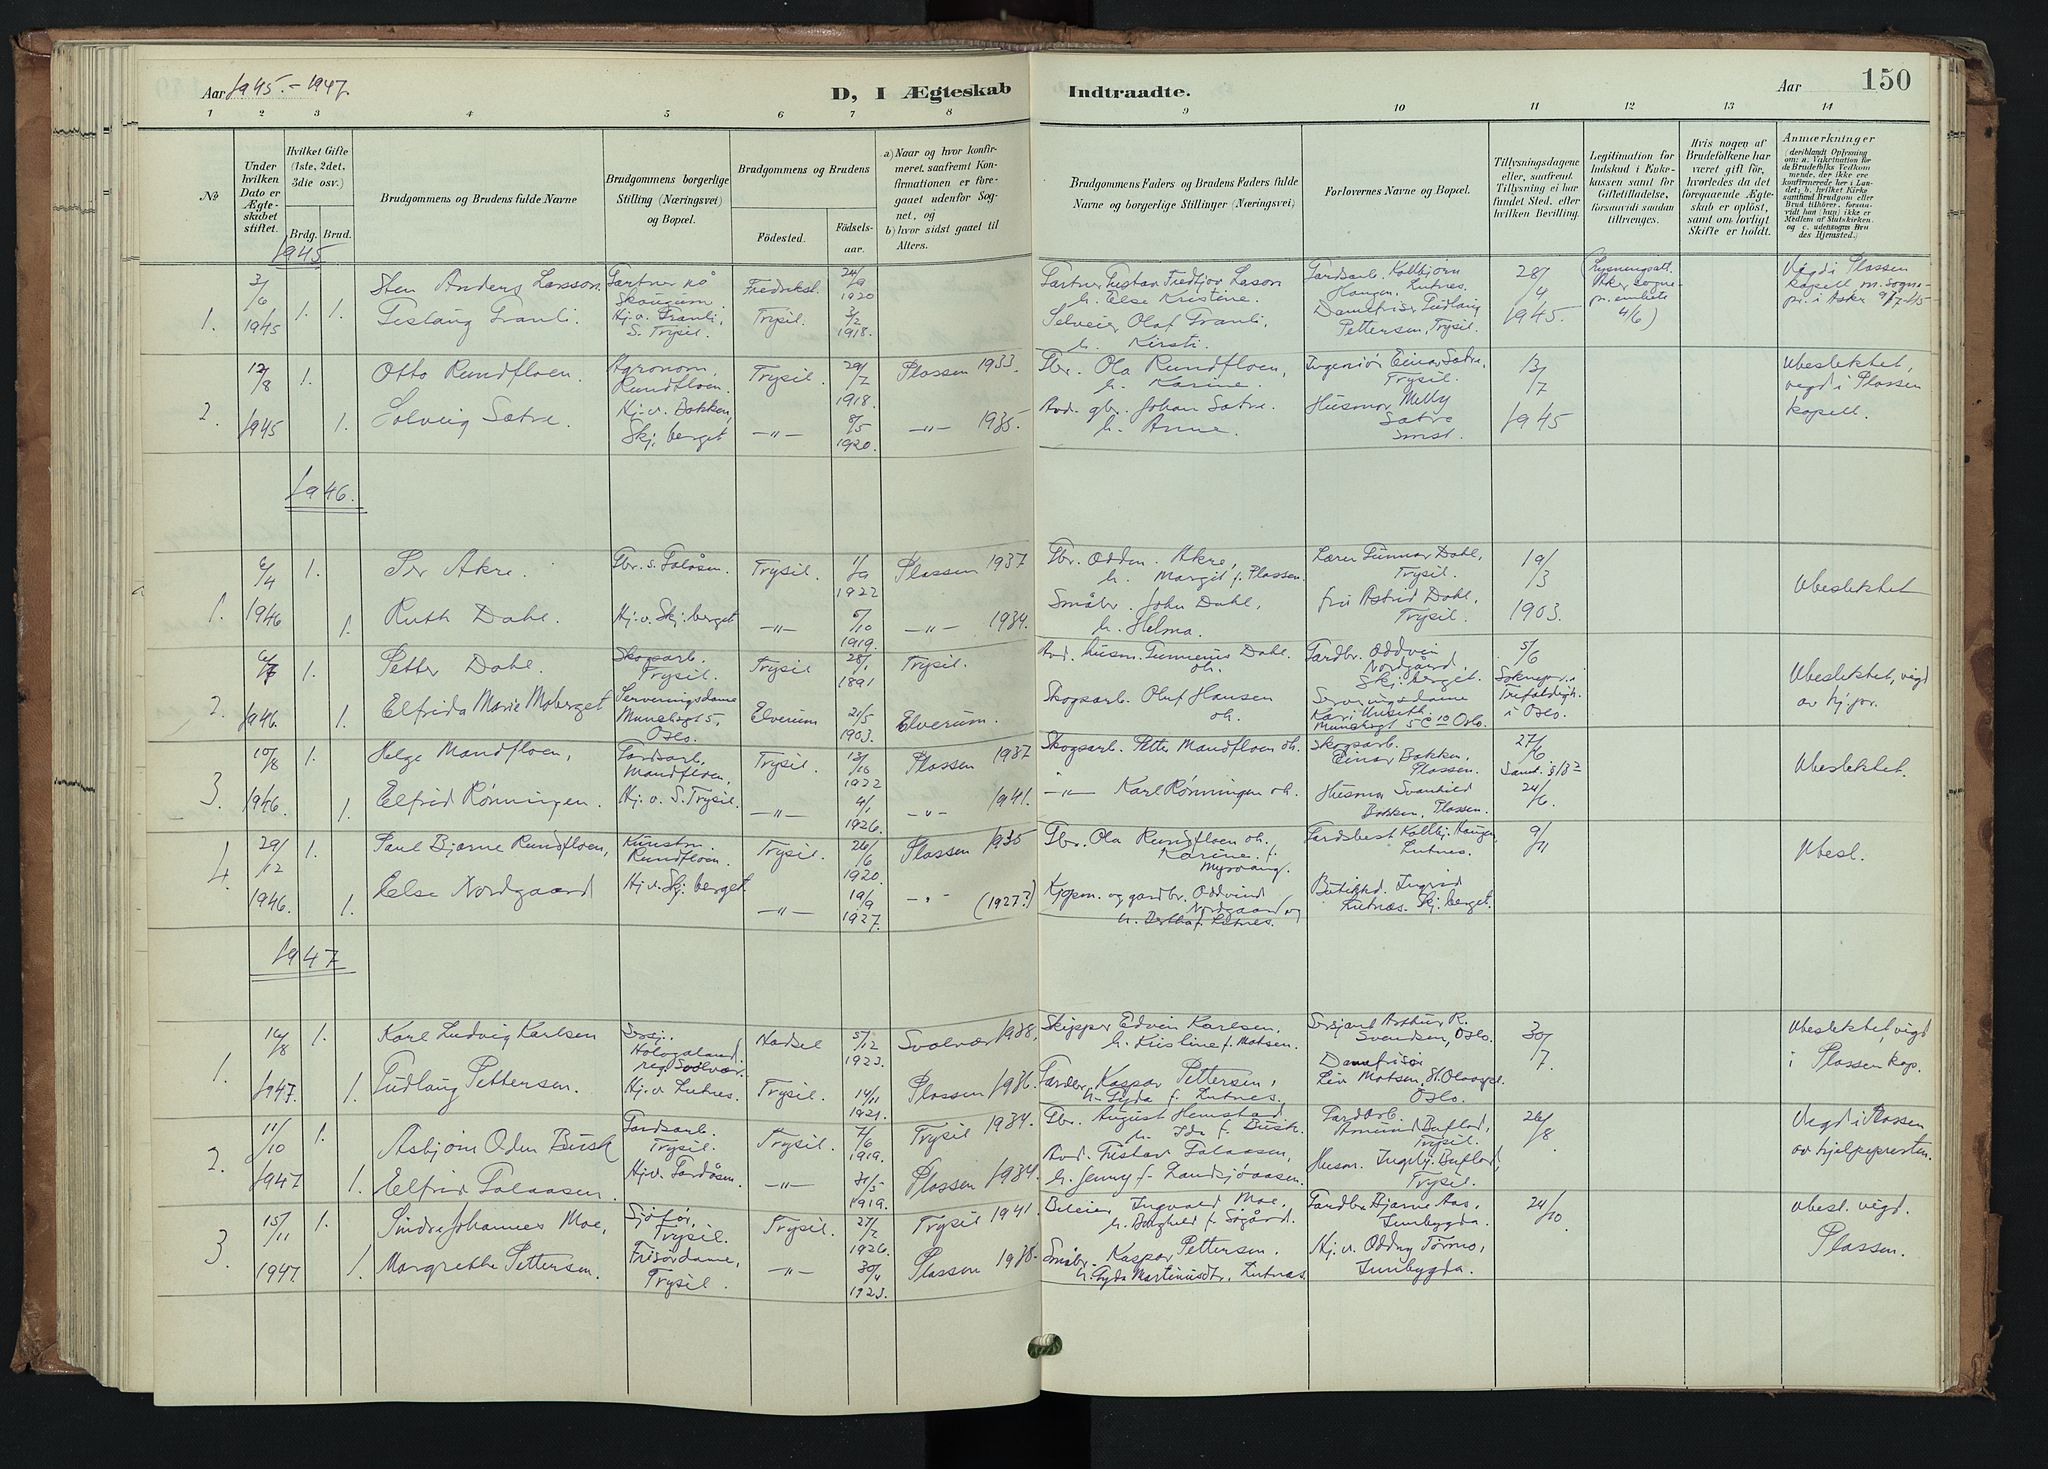 Aar 1945.-1947.
D, I Ægteskab
Indtraadte.
Aar
150
1 2 3 4 5 6 7 8 9 10 11 12 13 14
№
Under hvilken Dato er Ægteskabet stiftet.
Hvilket Gifte (1ste, 2det, 3die osv.)
Brdg. Brud.
Brudgommens og Brudens fulde Navne
Brudgommens borgerlige Stilling (Næringsvei) og Bopæl.
Brudgommens og Brudens
Fødested.
Fødselsaar.
a) Naar og hvor konfirmeret, saafremt Konfirmationen er foregaaet udenfor Sognet, og
b) hvor sidst gaaet til Alters.
Brudgommens Faders og Brudens Faders fulde Navne og borgerlige Stillinger (Næringsvei)
Forlovernes Navne og Bopæl.
Tillysningsdagene eller, saafremt Tillysning ei har fundet Sted, efter hvilken Bevilling.
Legitimation for Indskud i Enkekassen samt for Giftetilladelse, forsaavidt saadan tiltrænges.
Hvis nogen af Brudefolkene har været gift før, hvorledes da det foregaaende Ægteskab er opløst, samt om lovligt Skifte er holdt.
Anmærkninger
1945
3/6 1945
1. 1. 1.
Sten Anders Larsson
Gartner på Skaugum
Fredrikst.
24/9 1920
Gartner Gustav Fredjov Lasson h. Else Kristine.
Gardsarb. Kolbjørn Haugen, Lutnes.
28/4 1945
(Lysningsatt. Asker sogne-pr. embete 4/6)
Vigd i Plassen kapell m. sogne-pr. i Asker 9/7-45
Gislaug Granli.
Hj.v. Granli, S. Trysil.
Trysil.
3/2 1918.
Selveier Olaf Granli, h. Kirsti.
Damefrisør Gudlaug Pettersen, Trysil.
12/8 1945
2. 1. 1.
Otto Rundfloen.
Agronom, Rundfloen.
Trysil.
29/7 1918.
Plassen 1933.
Gbr. Ola Rundfloen, h. Karine.
Ingeniør Einar Sætre, Trysil.
13/7 1945
Ubeslektet, vegd i Plassen kapell.
Solveig Sætre.
Hj.v. Bakken, Skj.berget
-"-
8/5 1920.
-"- 1935.
Avd. gbr. Johan Sætre. h. Anne.
Husmor Melly Sætre smst.
1946.
6/4 1946
1. 1. 1.
Per Akre.
Gbr. s. Galåsen.
Trysil.
1/9 1922
Plassen 1937
Gbr. Odden. Akre, h. Margit f. Plassen.
Lærer Gunnar Dahl, Trysil.
19/3 1903.
Ubeslektet
Ruth Dahl.
Hj.v. Skj.berget
-"-
5/10 1919.
-"- 1934.
Småbr. John Dahl, h. Helma.
fru Astrid Dahl, Trysil.
6/7 1946.
2. 1. 1.
Petter Dahl.
Skogsarb. Trysil.
Trysil
28/1 1891
Trysil.
Avd. husm. Gunnerius Dahl oh.
Gardbr. Oddvin Nordgård, Skj.berget.
5/6 Soknepr. i Trefoldigh. i Oslo.
Ubeslektet, vigd av hj.pr.
Elfrida Marie Moberget
Serveringsdame Munchsgt 5, Oslo.
Elverum
21/5 1903.
Elverum.
Skogsarb. Oluf Hansen oh.
Serveringsdame Kari Huseth. Munchsgt 5 Oslo.
10/8 1946.
3. 1. 1.
Helge Mandfloen,
Gardsarb. Mandfloen,
Trysil.
13/10 1922
Plassen 1937
Skogsarb. Petter Mandfloen oh.
Skogsarb. Einar Bakken, Plassen.
27/6. 24/6.
Ubeslektet.
Elfrid Rønningen.
Hj.v. S. Trysil.
-"-
4/1 1926.
-"- 1941.
-"- Karl Rønningen oh.
Husmor Svanhild Bakken, Plassen.
29/12 1946.
4. 1. 1.
Paul Bjarne Rundfloen,
Rundfloen.
Trysil.
26/6 1920.
Plassen 1935
Gbr. Ola Rundfloen oh. Karine f. Myrvang.
Gardsbest. Kolbj. Haugen, Lutnes.
9/11
Ubesl.
Else Nordgaard
Hj.v. Skj.berget
-"-
19/9 1927.
-"- (1927?)
Kjøpm. og gardbr. Oddvind Nordgaard og h. Hertha f. Lutnes.
Butikkd. Ingrid Lutnæs. Skj.berget.
1947
16/8 1947.
1. 1. 1.
Karl Ludvig Karlsen
Sersj. Hålogaland reg. Svolvær.
Hadsel
5/12 1923.
Svolvær 1938.
Skipper Edvin Karlsen. h. Kristine f. Matsen.
Sersjant Arthur R. Svendsen, Oslo.
30/7.
Ubeslektet, vigd i Plassen kap.
Gudlaug Pettersen.
Hj.v. Lutnes.
Trysil.
14/11 1921.
Plassen 1936.
Gardbr. Kaspar Pettersen, h. Gyda f. Lutnes.
Damefrisør Liv Matsen, St. Olavspl. Oslo.
11/10 1947
2. 1. 1.
Asbjørn Oden Busk
Gardsarb. Trysil.
Trysil.
7/6 1919.
Trysil 1934.
Gbr. August Hemstad h. Ida f. Busk.
Gardarb. Amund Buflod, Trysil.
26/8.
Vegd i Plassen av hjelpepresten.
Elfrid Galaasen.
Hj.v. Gardåsen.
-"-
31/5 1919.
Plassen 1934.
Avd. Gustav Galaasen, h. Jenny f. Landsjøaasen.
Husm. Ingebj. Buflod, Trysil.
15/11 1947.
3. 1. 1.
Sindre Johannes Moe,
Sjåfør, Trysil.
Trysil.
27/2 1926.
Trysil 1941.
Bileier Ingvald Moe, h. Borghild f. Sigård.
Gardbr. Hjarne Aas, Innbygda.
24/10.
Ubesl. vigd. Plassen.
Margrethe Pettersen.
Frisørdame, Trysil.
-"-
30/4 1923.
Plassen 1938.
Småbr. Kaspar Pettersen. h. Gyda Martinusdtr. Lutnes.
Hj.v. Oddny Tørmo, Innbygda.